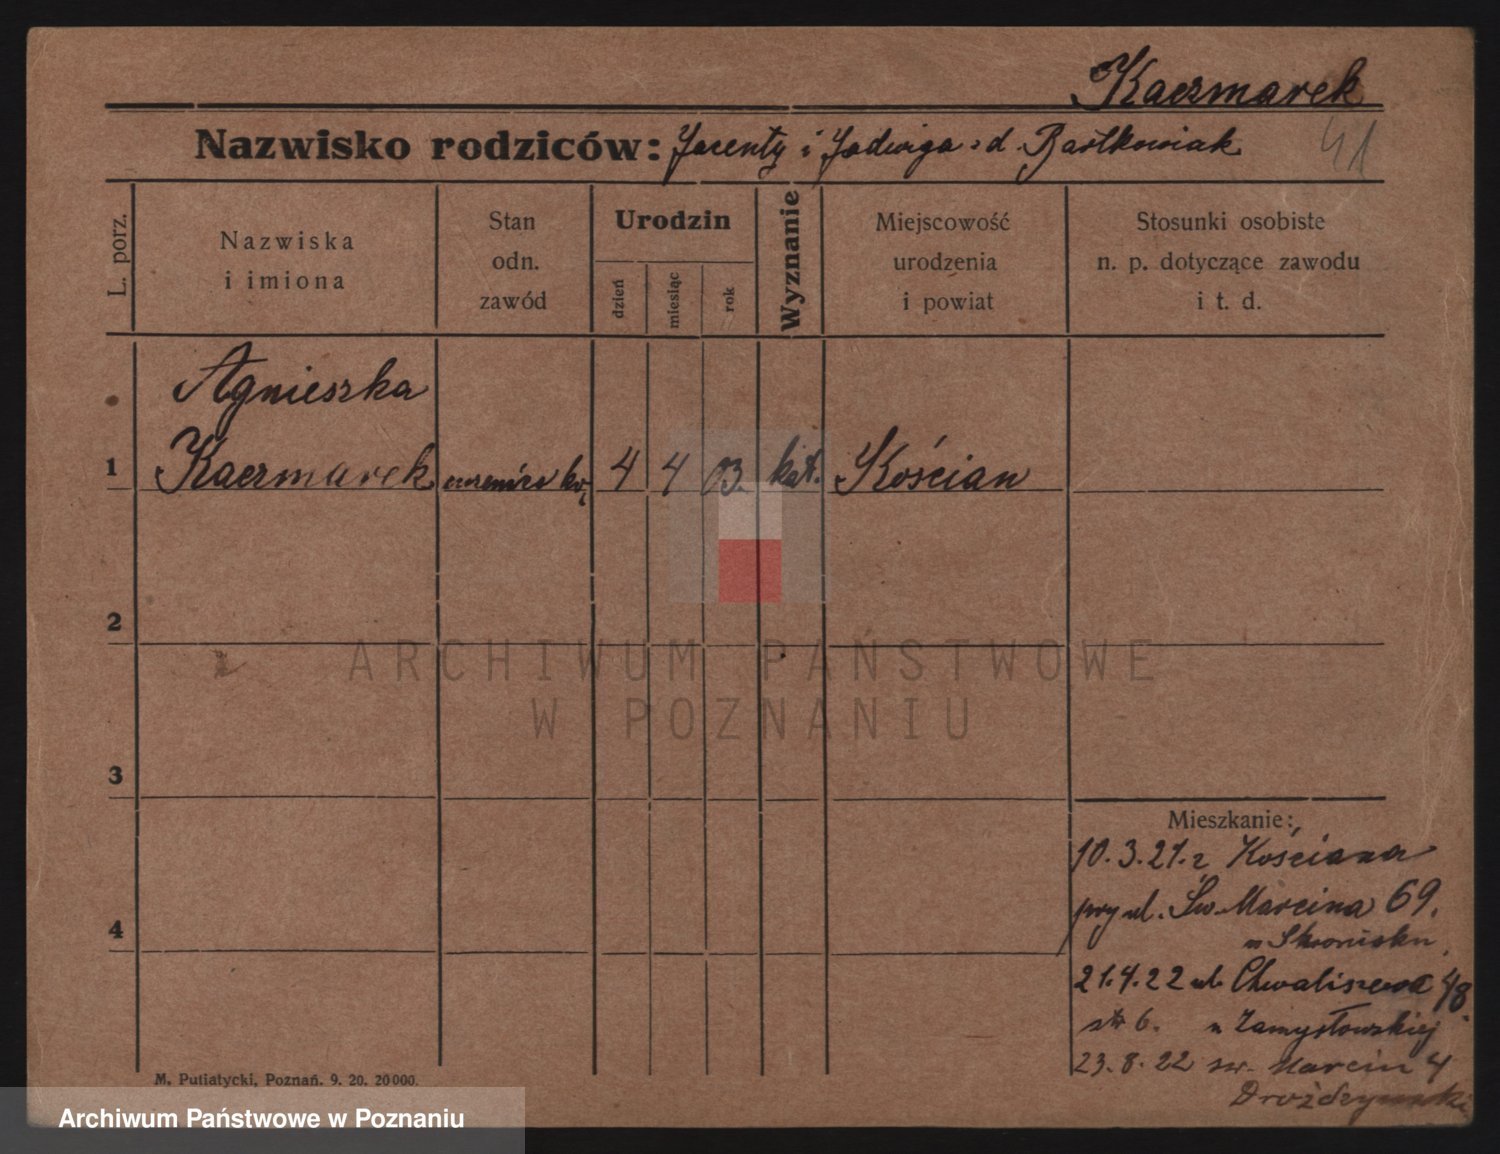 Kaczmarek
Nazwisko rodziców: Jacenty i Jadwiga z d. Bartkowiak
41
L. porz.
Nazwiska
i imiona
Stan
odn.
zawód
Urodzin
dzień
miesiąc
rok
Wyznanie
Miejscowość
urodzenia
i powiat
Stosunki osobiste
n. p. dotyczące zawodu
i t. d.
Agnieszka
1 Kaczmarek 4 4 03. kat. Kościan
2
ARCHIWUM PAŃSTWOWE
W POZNANIU
3
Mieszkanie:
10.3.21. z Kościana
przy ul. Św. Marcina 69.
4
21.4.22 ul. Chwaliszewo 48
str 6. u Zamysłowskiej
23.8.22 św. Marcin 4
M. Putiatycki, Poznań. 9. 20. 20000.
Archiwum Państwowe w Poznaniu